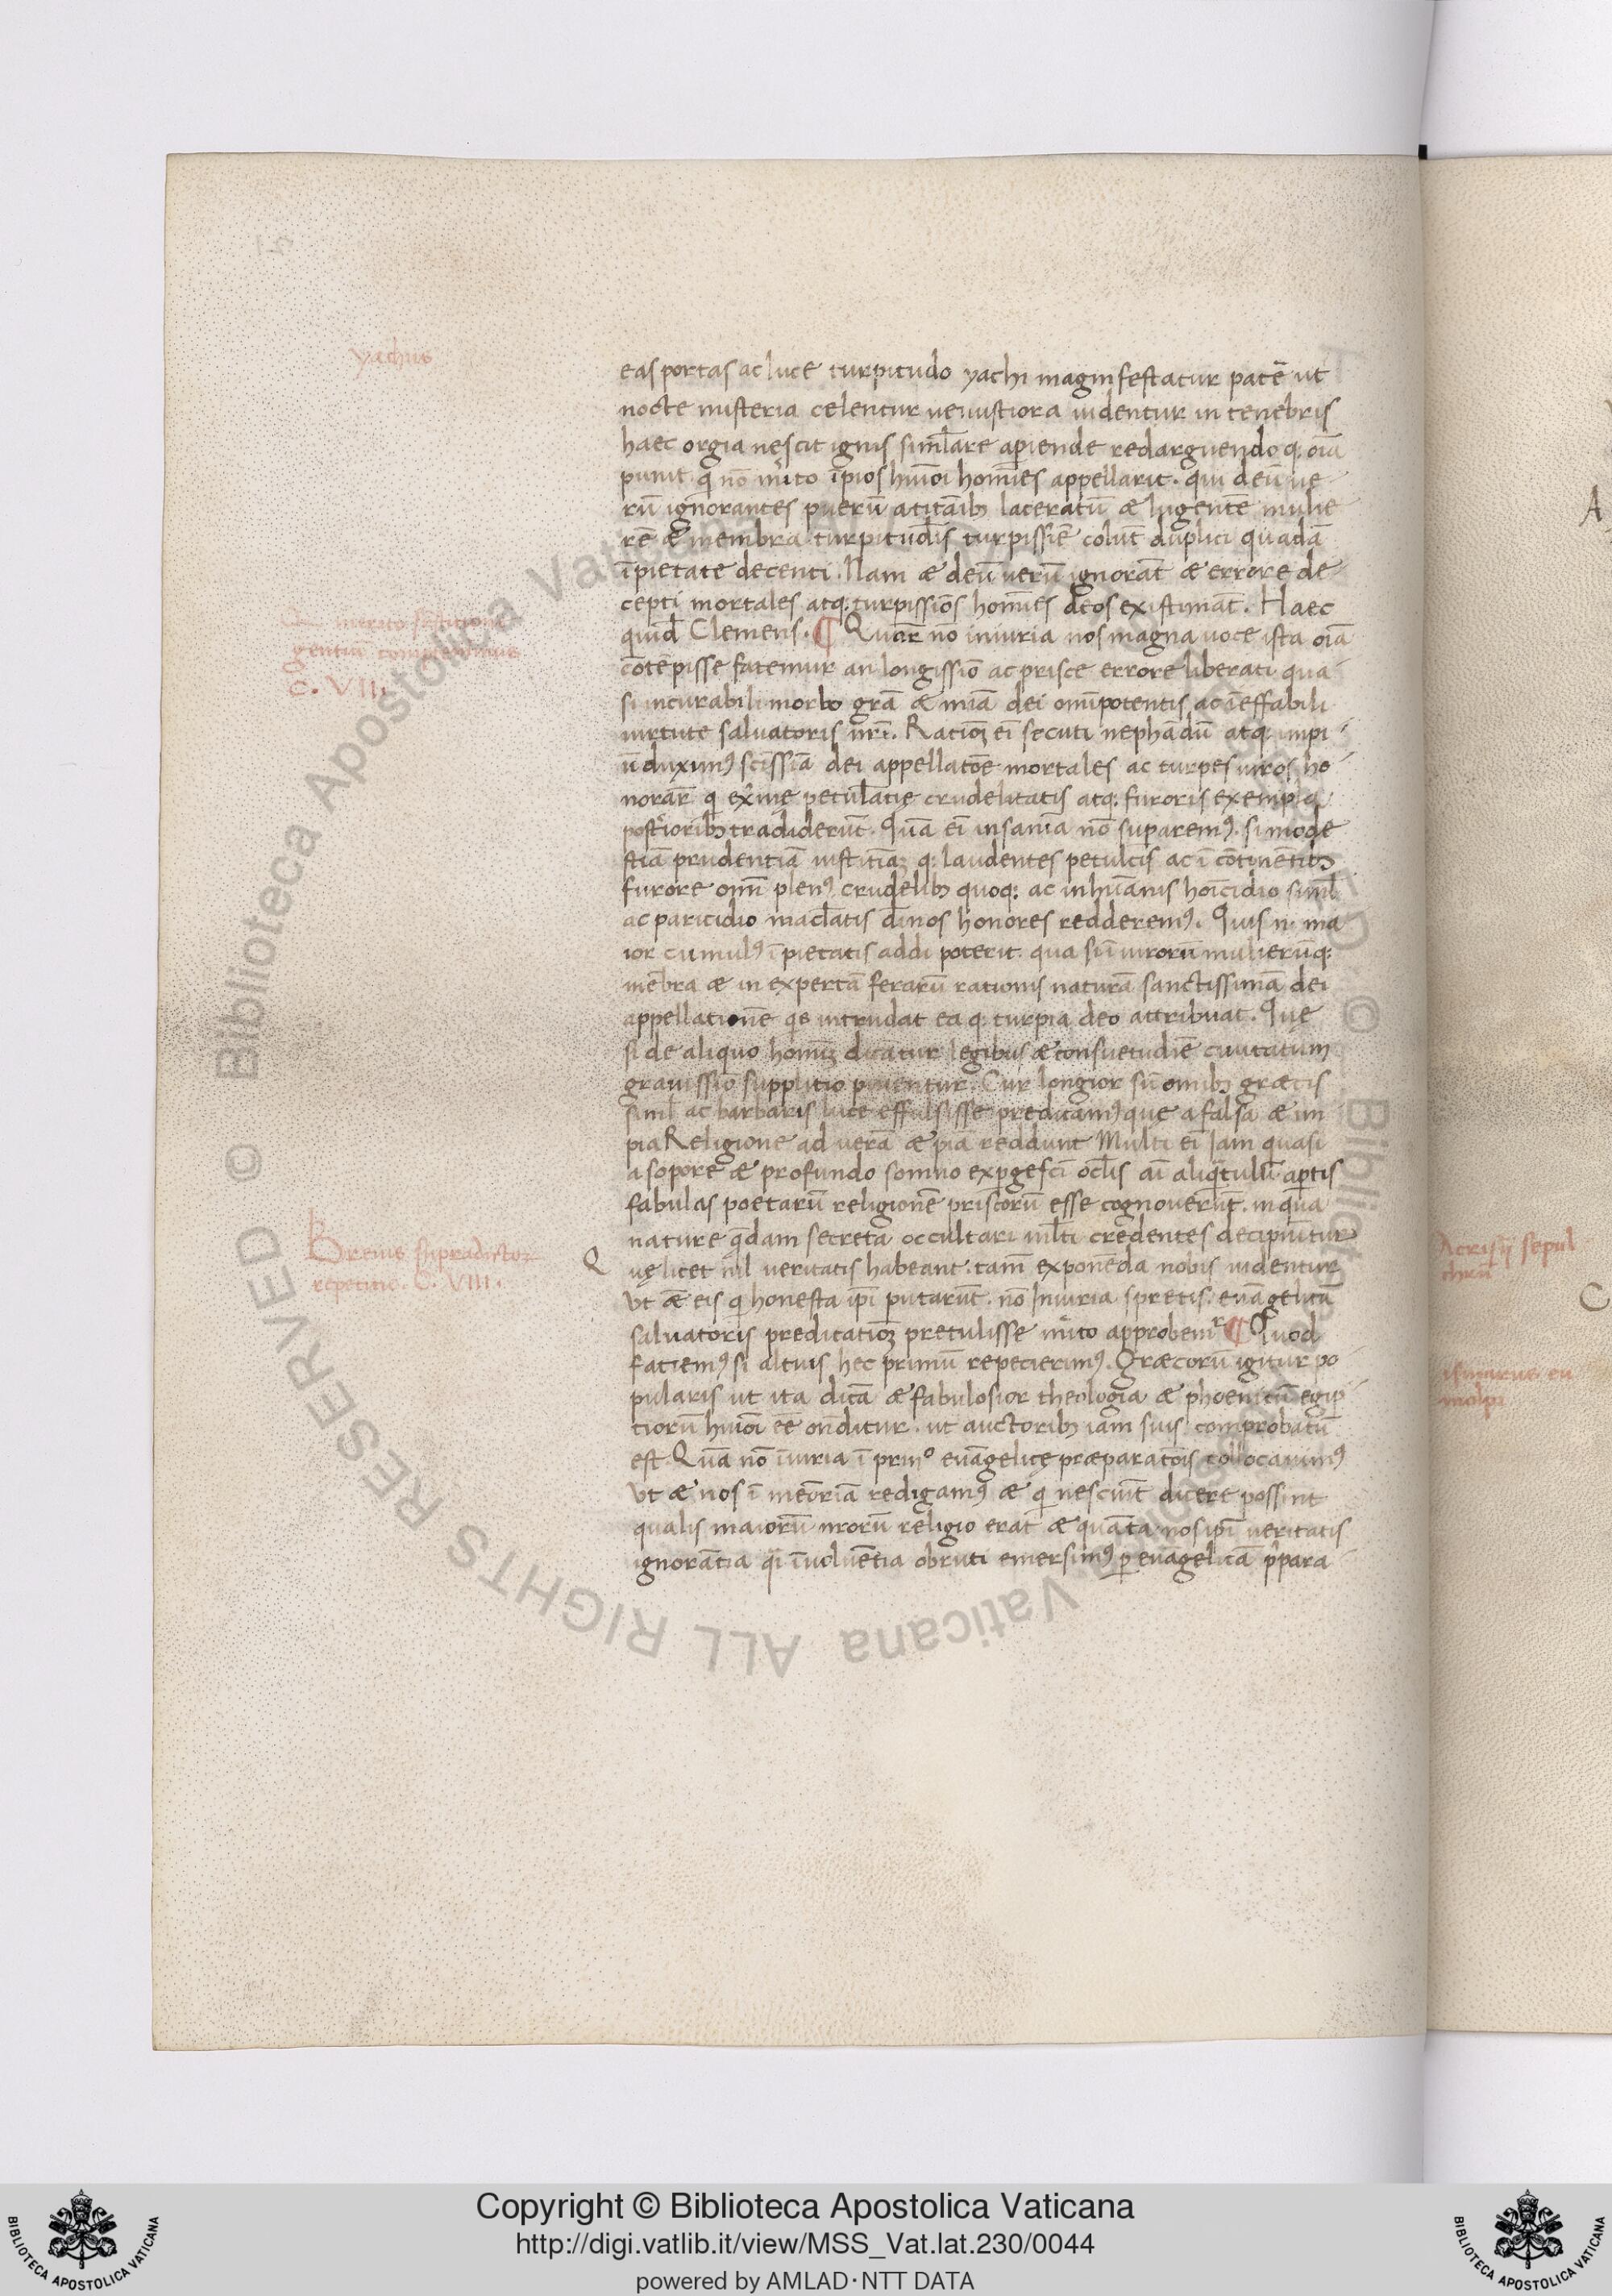 yachus
eas portas ac luce turpitudo yachi magnifestatur patē ut
nocte misteria celentur uenustiora uidentur in tenebris
haec orgia nescit ignis simłare apiende redarguendo q; oīa
punit q nō mito īpios hmōi homīes appellarit. qui deū ue
rū ignorantes puerū a titāibȝ laceratū æ lugentē mulie
rē æ membra turpitudīs turpissīe colūt duplici quadā
īpietate decenti. Nam æ deū uerū ignorāt æ errore de
cepti mortales atq; turpissīos homīes deos existimāt. Haec
quid Clemens. ¶ Quar̄ nō iniuria nos magna uoce ista oīa
merito
gentiū
C. VII.
cōtēpisse fatemur an longissīo ac prisce errore liberati qua
si incurabili morbo grā æ mīa dei omīpotentis ac īeffabili
uirtute saluatoris nrī. Ratiōȝ eī secuti nephādū atq; impi
ū duximꝰ scīssīā dei appellatōē mortales ac turpes uiros ho
norar̄ q exīmie petulātię crudelitatis atq; furoris exempla
postioribȝ tradiderūt. Quā eī insaniā nō suparemꝰ. si mode
stiā prudentiā iustitiāȝ q; laudentes petulcis ac ī cōtinētibȝ
furore omī plenꝰ crudelibȝ quoq; ac inhūanis hoīcidio simł
ac paricidio macłatis dīnos honores redderemꝰ. Quis n̄ ma
ior cumulꝰ īpietatis addi poterit. qua si ī uirorū mulierūq;
mēbra æ in expertā ferarū rationis naturā sanctissimā dei
appellationē qs intrudat ea q; turpia deo attribuat. Quę
si de aliquo homīȝ dicatur legibus æ consuetudīe ciuitatum
grauissīo supplitio puientur. Cur longior sū omībȝ græcis
simł ac barbaris luce effulsisse predicamꝰ que a falsa æ im
pia Religione ad verā æ piā reddunt Multi eī Jam quasi
a sopore æ profundo somno expgefcī ocłis aī aliqtulū aptis
fabulas poetarū religionē priscorū esse cognouerūt. in qua
nature qdam secreta occultari mlti credentes decipiuntur
Breuis supradictoꝝ
repetitio. C. VIII.
Q uę licet nil veritatis habeant. tam̄ exponēda nobis uidentur
Vt æ eis q honesta ipī putarūt. nō Iniuria spretis. euāgelicā
saluatoris predicatiōȝ pretulisse mito approbemr ¶ Quod
faciemꝰ si altius hec primū repecierimꝰ. Græcorū igitur po
pularis ut ita dicā æ fabulosior theologia æ phoenicū egip
tiorū hmōi ēē onditur. ut auctoribȝ iam suis comprobatū
est. Quā nō iniuria ī primo euāgelicę præparatōis collocauimꝰ
Vt æ nos ī meōriā redigamꝰ æ q nesciūt dicere possint
qualis maiorū nrorū religio erat æ quāta nos ipī ueritatis
ignorātia qī īuoluētia obruti emersimꝰ p euāgelicā p̄para
Acrisij sepul
chrū
ismarus eu
molpi
Copyright © Biblioteca Apostolica Vaticana
http://digi.vatlib.it/view/MSS_Vat.lat.230/0044
powered by AMLAD·NTT DATA
BIBLIOTECA APOSTOLICA VATICANA
BIBLIOTECA APOSTOLICA VATICANA